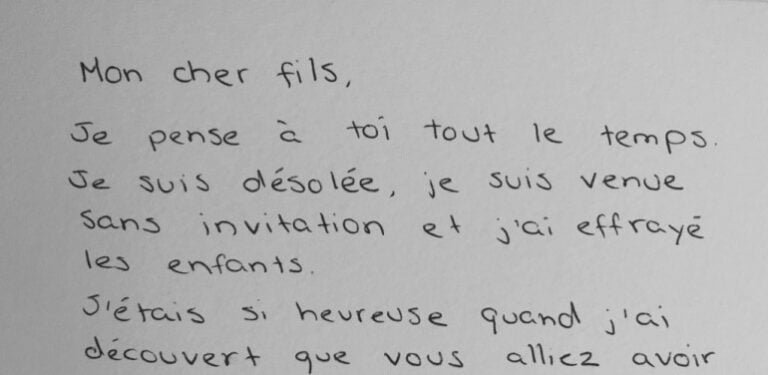 Mon cher fils,
Je pense à toi tout le temps.
Je suis désolée, je suis venue
sans invitation et j'ai effrayé
les enfants.
J'étais si heureuse quand j'ai
découvert que vous alliez avoir